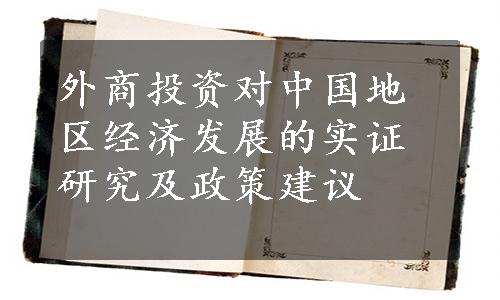 外商投资对中国地
区经济发展的实证
研究及政策建议